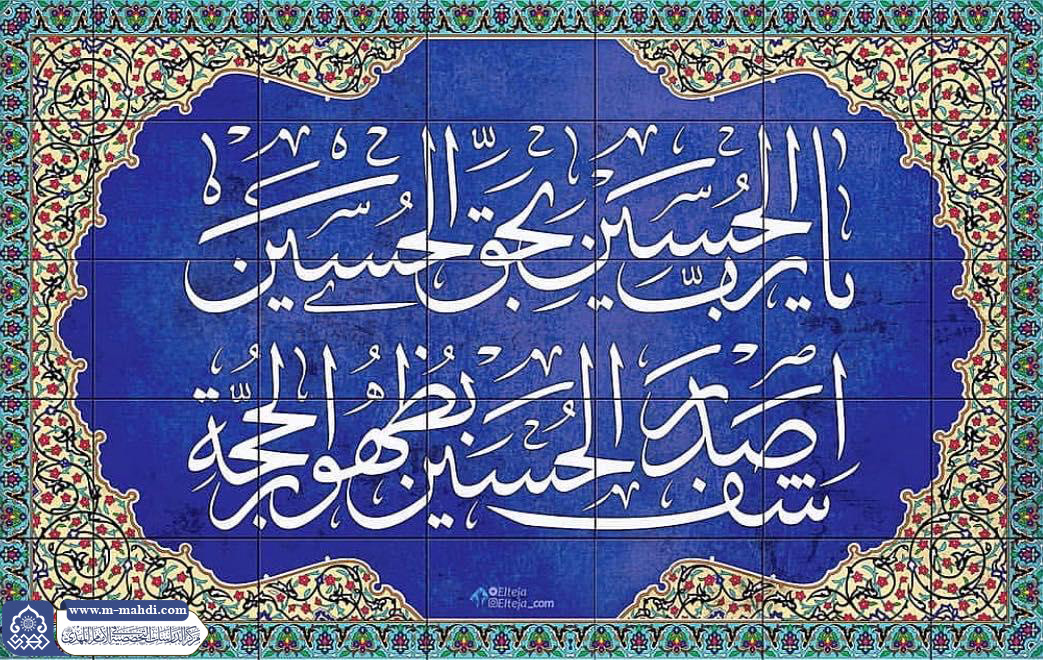 يا رب الحسين بحق الحسين
اشف صدر الحسين بظهور الحجة
Elteja
Elteja_com
www.m-mahdi.com
مركز الدراسات التخصصية في الإمام المهدي